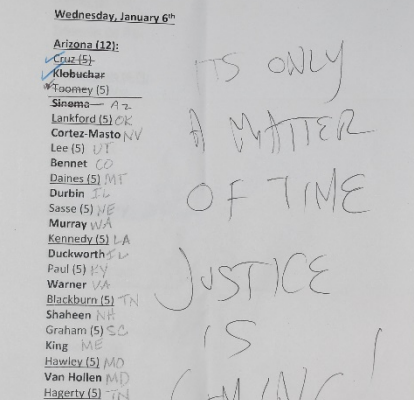 Wednesday, January 6th
Arizona (12):
Cruz (5)
Klobuchar
Toomey (5)
Sinema AZ
Lankford (5) OK
Cortez-Masto NV
Lee (5) UT
Bennet CO
Daines (5) MT
Durbin IL
Sasse (5) NE
Murray WA
Kennedy (5) LA
Duckworth IL
Paul (5) KY
Warner VA
Blackburn (5) TN
Shaheen NH
Graham (5) SC
King ME
Hawley (5) MO
Van Hollen MD
Hagerty (5) TN
ITS ONLY
A MATTER
OF TIME
JUSTICE
IS
COMING!